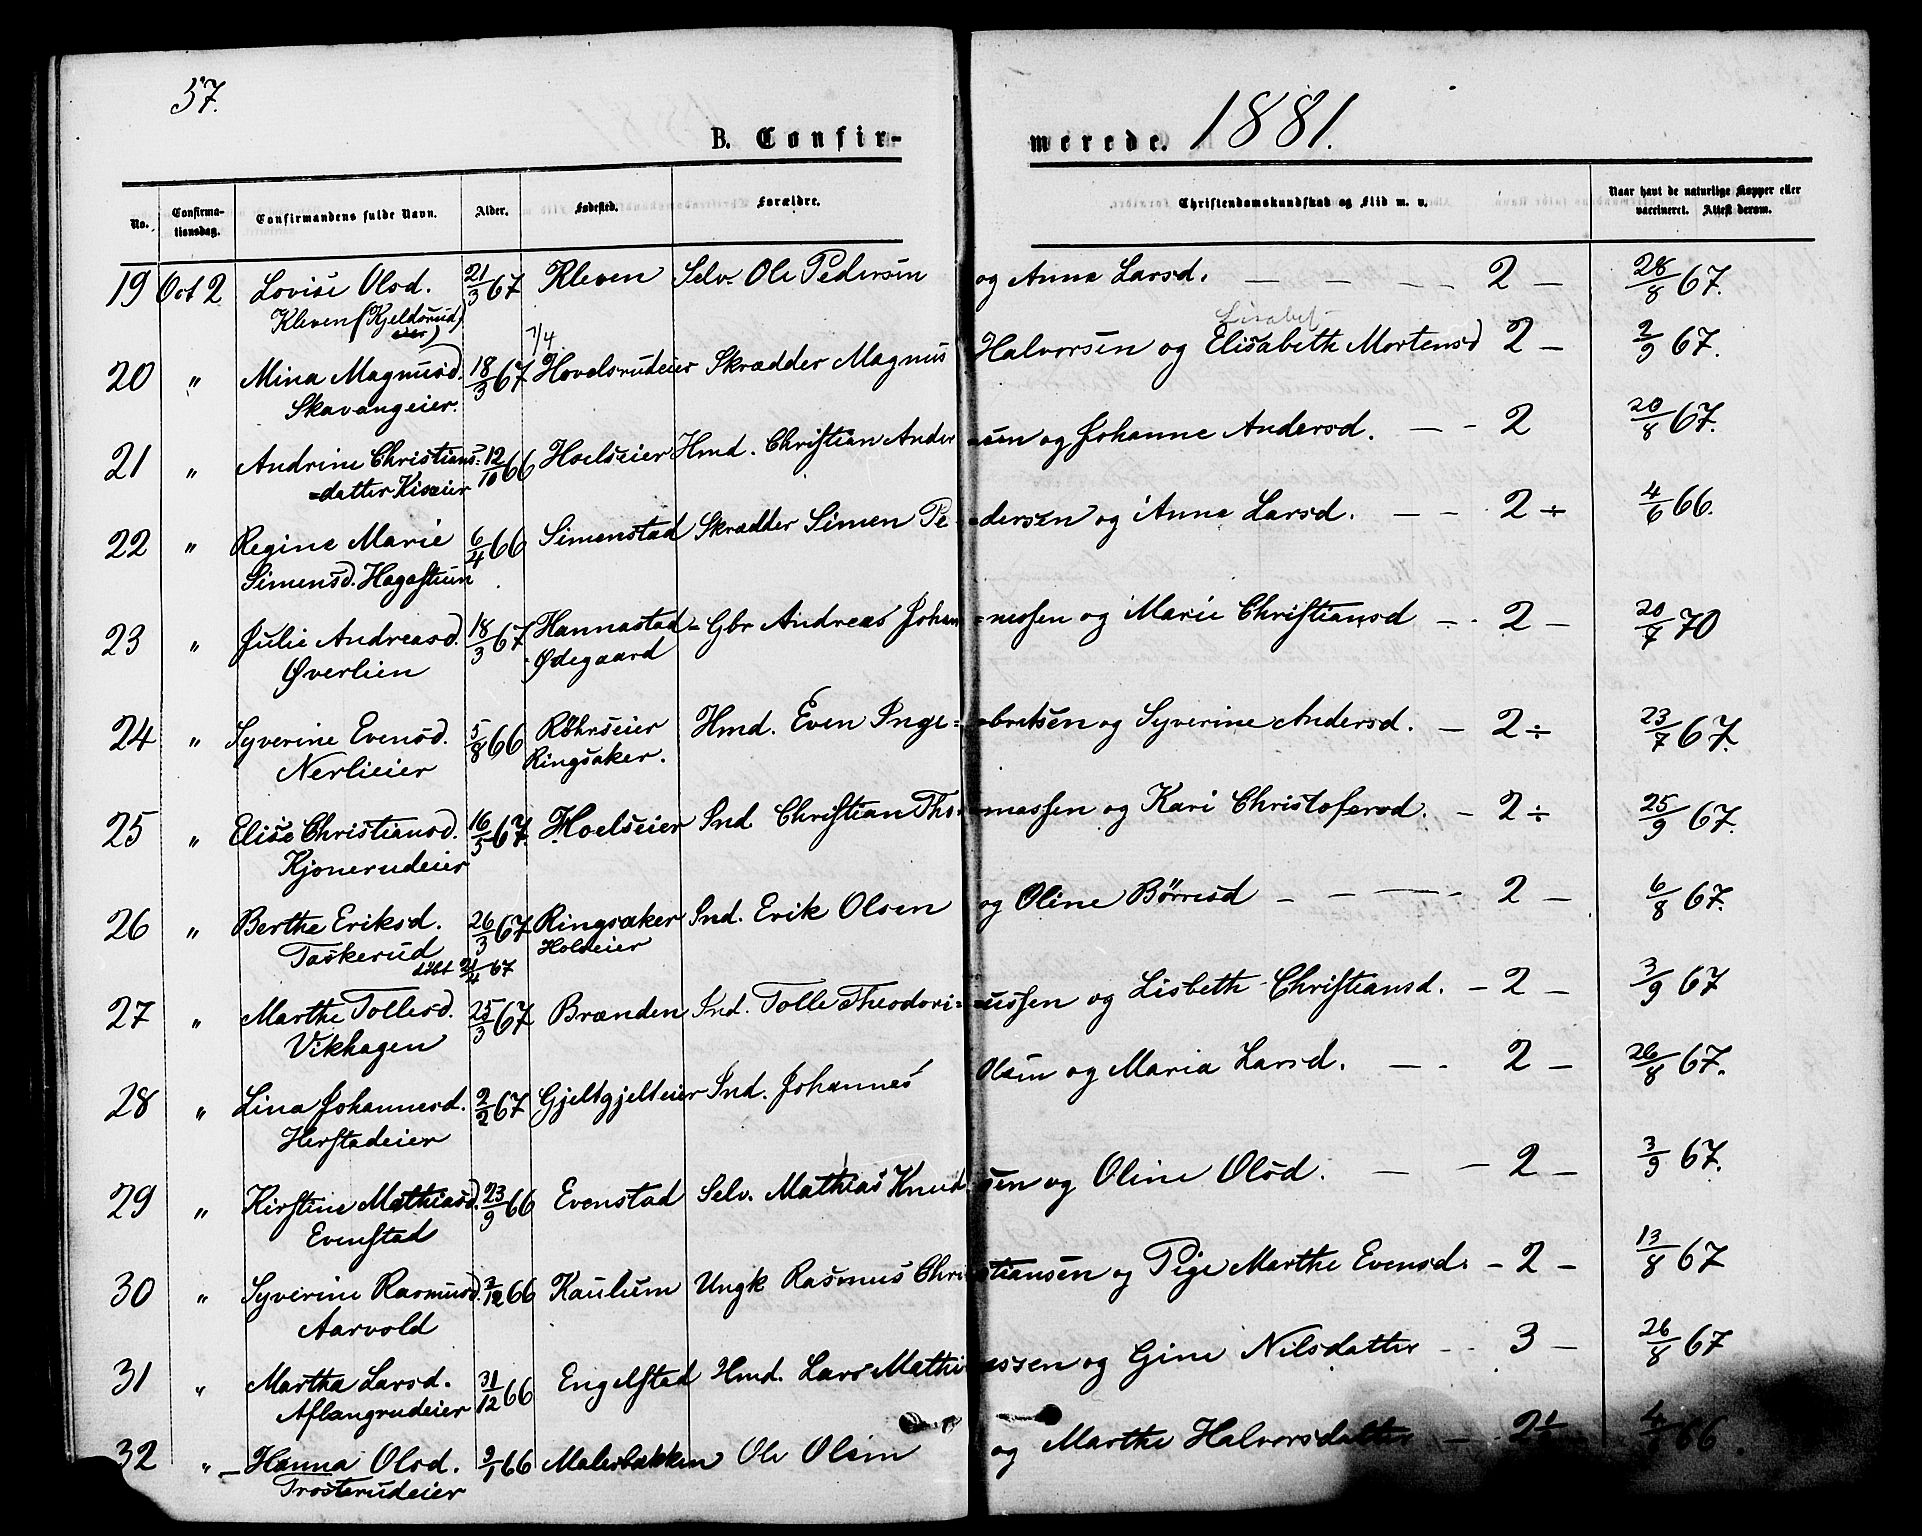 57.
B. Confirmerede. 1881.
No. Confirmationsdag. Confirmandens fulde Navn. Alder. Fødested. Forældre. Christendomskundskab og Flid m. v. Naar havt de naturlige Kopper eller vaccineret. Attest derom.
19 Oct 2 Lovise Olsd. 21/3 67 Kleven Selv. Ole Pedersen og Anna Larsd. — — — — 2 — 28/8 67.
Kleven (Kjeldsrud)
Lisabet
7/4.
20 " Mina Magnusd. 18/3 67 Hovelsrudeier Skrædder Magnus Halvorsen og Elisabeth Mortensd 2 — 2/9 67.
Skavangeier.
21 " Andrine Christians= 12/10 66 Hoelseier Hmd. Christian Andersen og Johanne Andersd. — - 2 20/8 67.
=datter Kiseier
22 " Regine Marie 6/4 66 Simenstad Skrædder Simen Pe=dersen og Anne Larsd. — - 2 ÷ 4/6 66.
Simensd. Hagastuen
23 " Julie Andreasd. 18/3 67 Hannastad- Gbr Andreas Johan=nessen og Marie Christiansd — - 2 — 20/7 70
Øverlien Ødegaard
24 " Syverine Evensd. 5/8 66 Røhrseier Hmd. Even Inge=bretsen og Syverine Andersd. — 2 ÷ 23/7 67.
Nerlieier Ringsaker.
25 " Elise Christiansd. 16/5 67. Hoelseier Ind. Christian Tho=massen og Kari Christofersd. — 2 ÷ 25/9 67.
Kjonerudeier
26 " Berthe Eriksd. 26/3 67 Ringsaker Ind. Erik Olsen og Oline Børresd — — — - 2 — 6/8 67.
Taskerud Holseier
døbt 21/4 67
27 " Marthe Tollesd. 25/3 67 Brænden Ind. Tolle Theodori=ussen og Lisbeth Christiansd. — 2 — 3/9 67
Vikhagen
28 " Lina Johannesd. 2/2 67 Gjeltgjelteier Ind. Johannes Olsen og Maria Larsd. — - 2 — 26/8 67.
Herstadeier
29 " Kirstine Mathiasd. 23/9 66 Evenstad Selv. Mathias Knudsen og Oline Olsd. — — 2 — 3/9 67.
Evenstad
30 " Syverine Rasmusd. 3/12 66 Kaulum Ungk Rasmus Christiansen og Pige Marthe Evensd. - 2 - 13/8 67
Aarvold
31 " Martha Larsd. 31/12 66 Engelstad Hmd. Lars Mathiassen og Gine Nilsdatter - - 3 — 26/8 67
Aflangrudeier
32 " — Hanna Olsd. 9/1 66 Malerbakken Ole Olsen og Marthe Halvorsdatter — - 2 66.
Trosterudeier